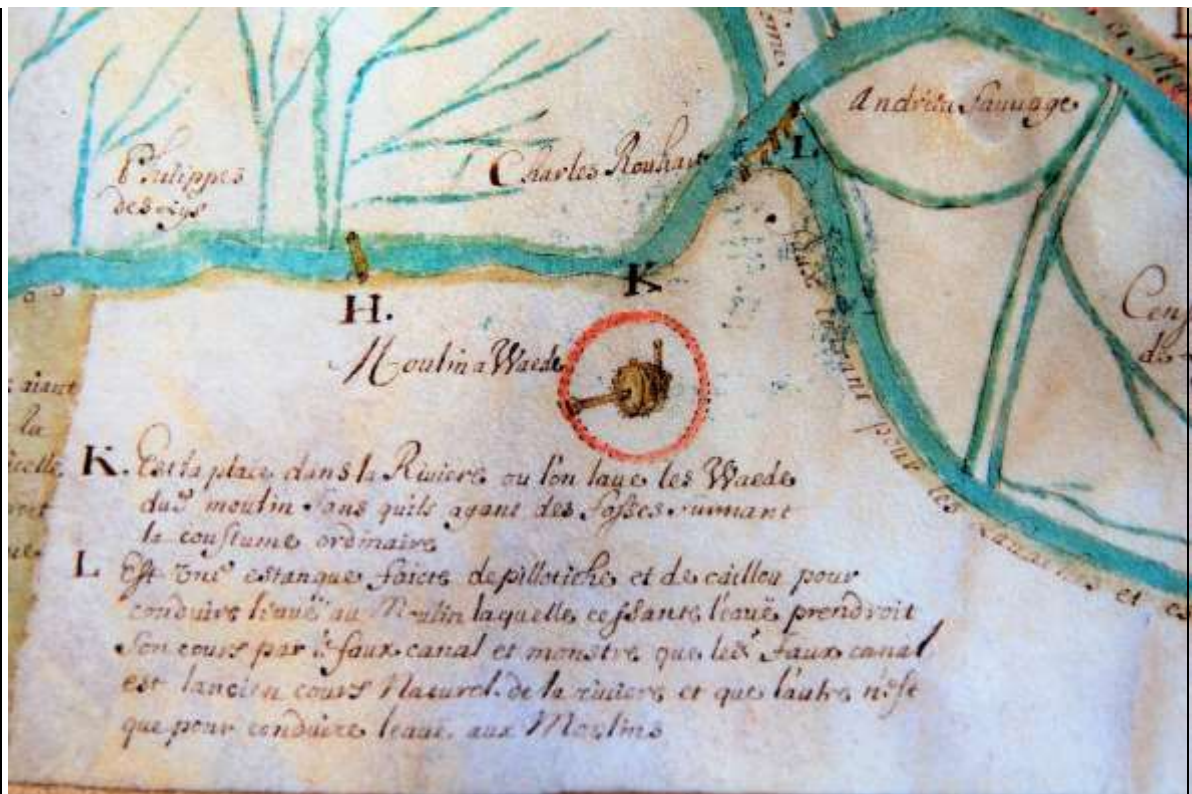 Andrieu Sauuage
Charles Rouhart
Philippes
des Lys
L.
K
H.
Moulin a Waede
Cens
de
aiant
la
icelle
pour les
et es
K. Est la place dans la Riuiere ou l'on laue les Waede
dud moulin sans quils ayant des fosses suiuant
la coustume ordinaire
L Est vne estanque faicte de pillotiche et de caillou pour
conduire l'eauë au Moulin laquelle cessante l'eauë prendroit
son cours par le faux canal et monstre que led faux canal
est lancien cours Naturel de la riuiere et que lautre n'est
que pour conduire leaue aux Moulins